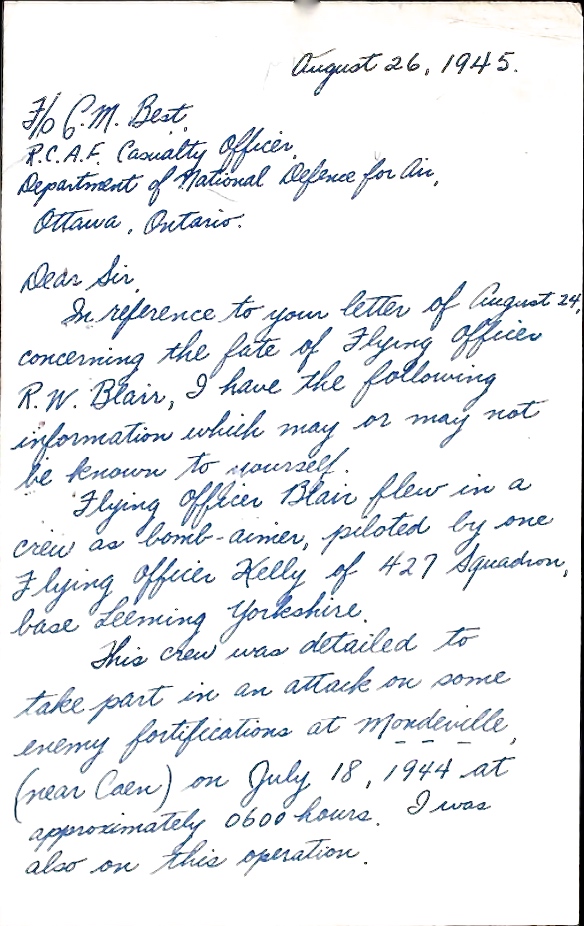 August 26, 1945.
F/O C.M. Best,
R.C.A.F. Casualty Officer,
Department of National Defence for Air,
Ottawa, Ontario.
Dear Sir,
In reference to your letter of August 24,
concerning the fate of Flying Officer
R.W. Blair, I have the following
information which may or may not
be known to yourself.
Flying Officer Blair flew in a
crew as bomb-aimer, piloted by one
Flying Officer Kelly of 427 Squadron,
base Leeming Yorkshire.
This crew was detailed to
take part in an attack on some
enemy fortifications at Mondeville,
(near Caen) on July 18, 1944 at
approximately 0600 hours. I was
also on this operation.